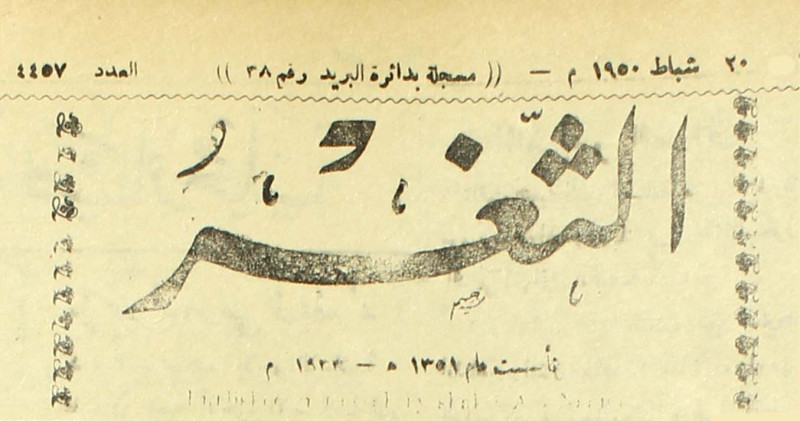 ٢٠ شباط ١٩٥٠ م — ((مسجلة بدائرة البريد رقم ٣٨)) العدد ٤٤٥٧
الثَّغْرُ
تأسست عام ١٣٥١ ه — ١٩٣٣ م